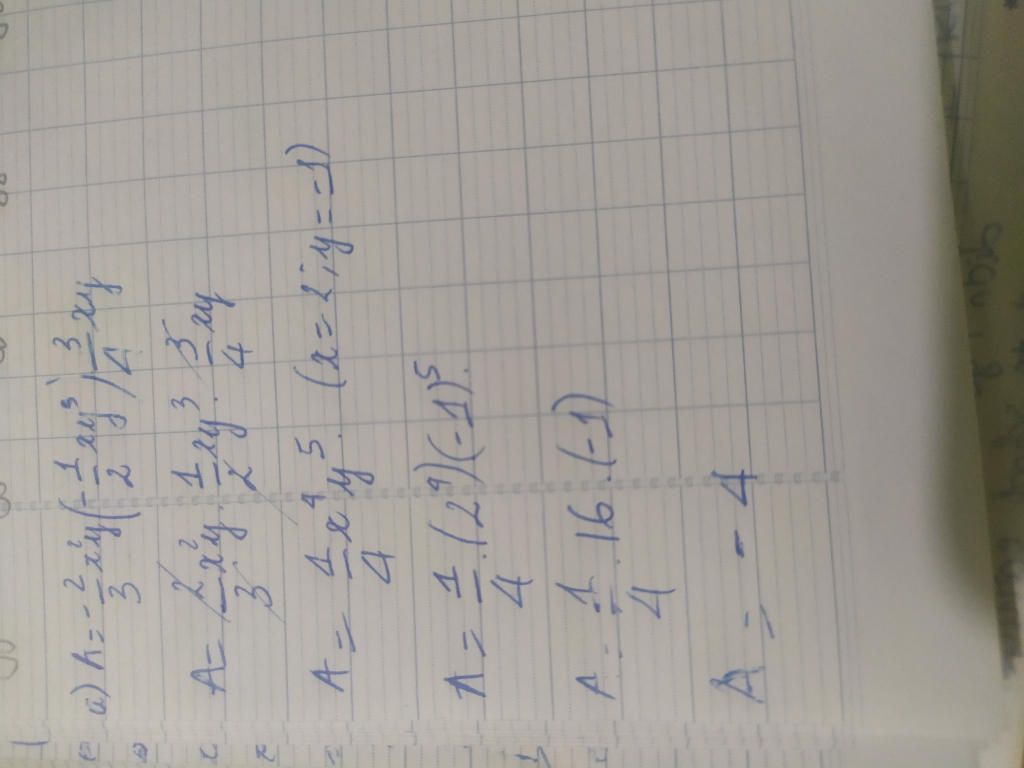 a) A = -2/3 x²y (-1/2 xy³) 3/4 xy
A = 2/3 x²y . 1/2 xy³ . 3/4 xy
A = 1/4 x⁴y⁵. (x = 2; y = -1)
A = 1/4 . (2⁴)(-1)⁵.
A = 1/4 . 16 . (-1)
A = -4